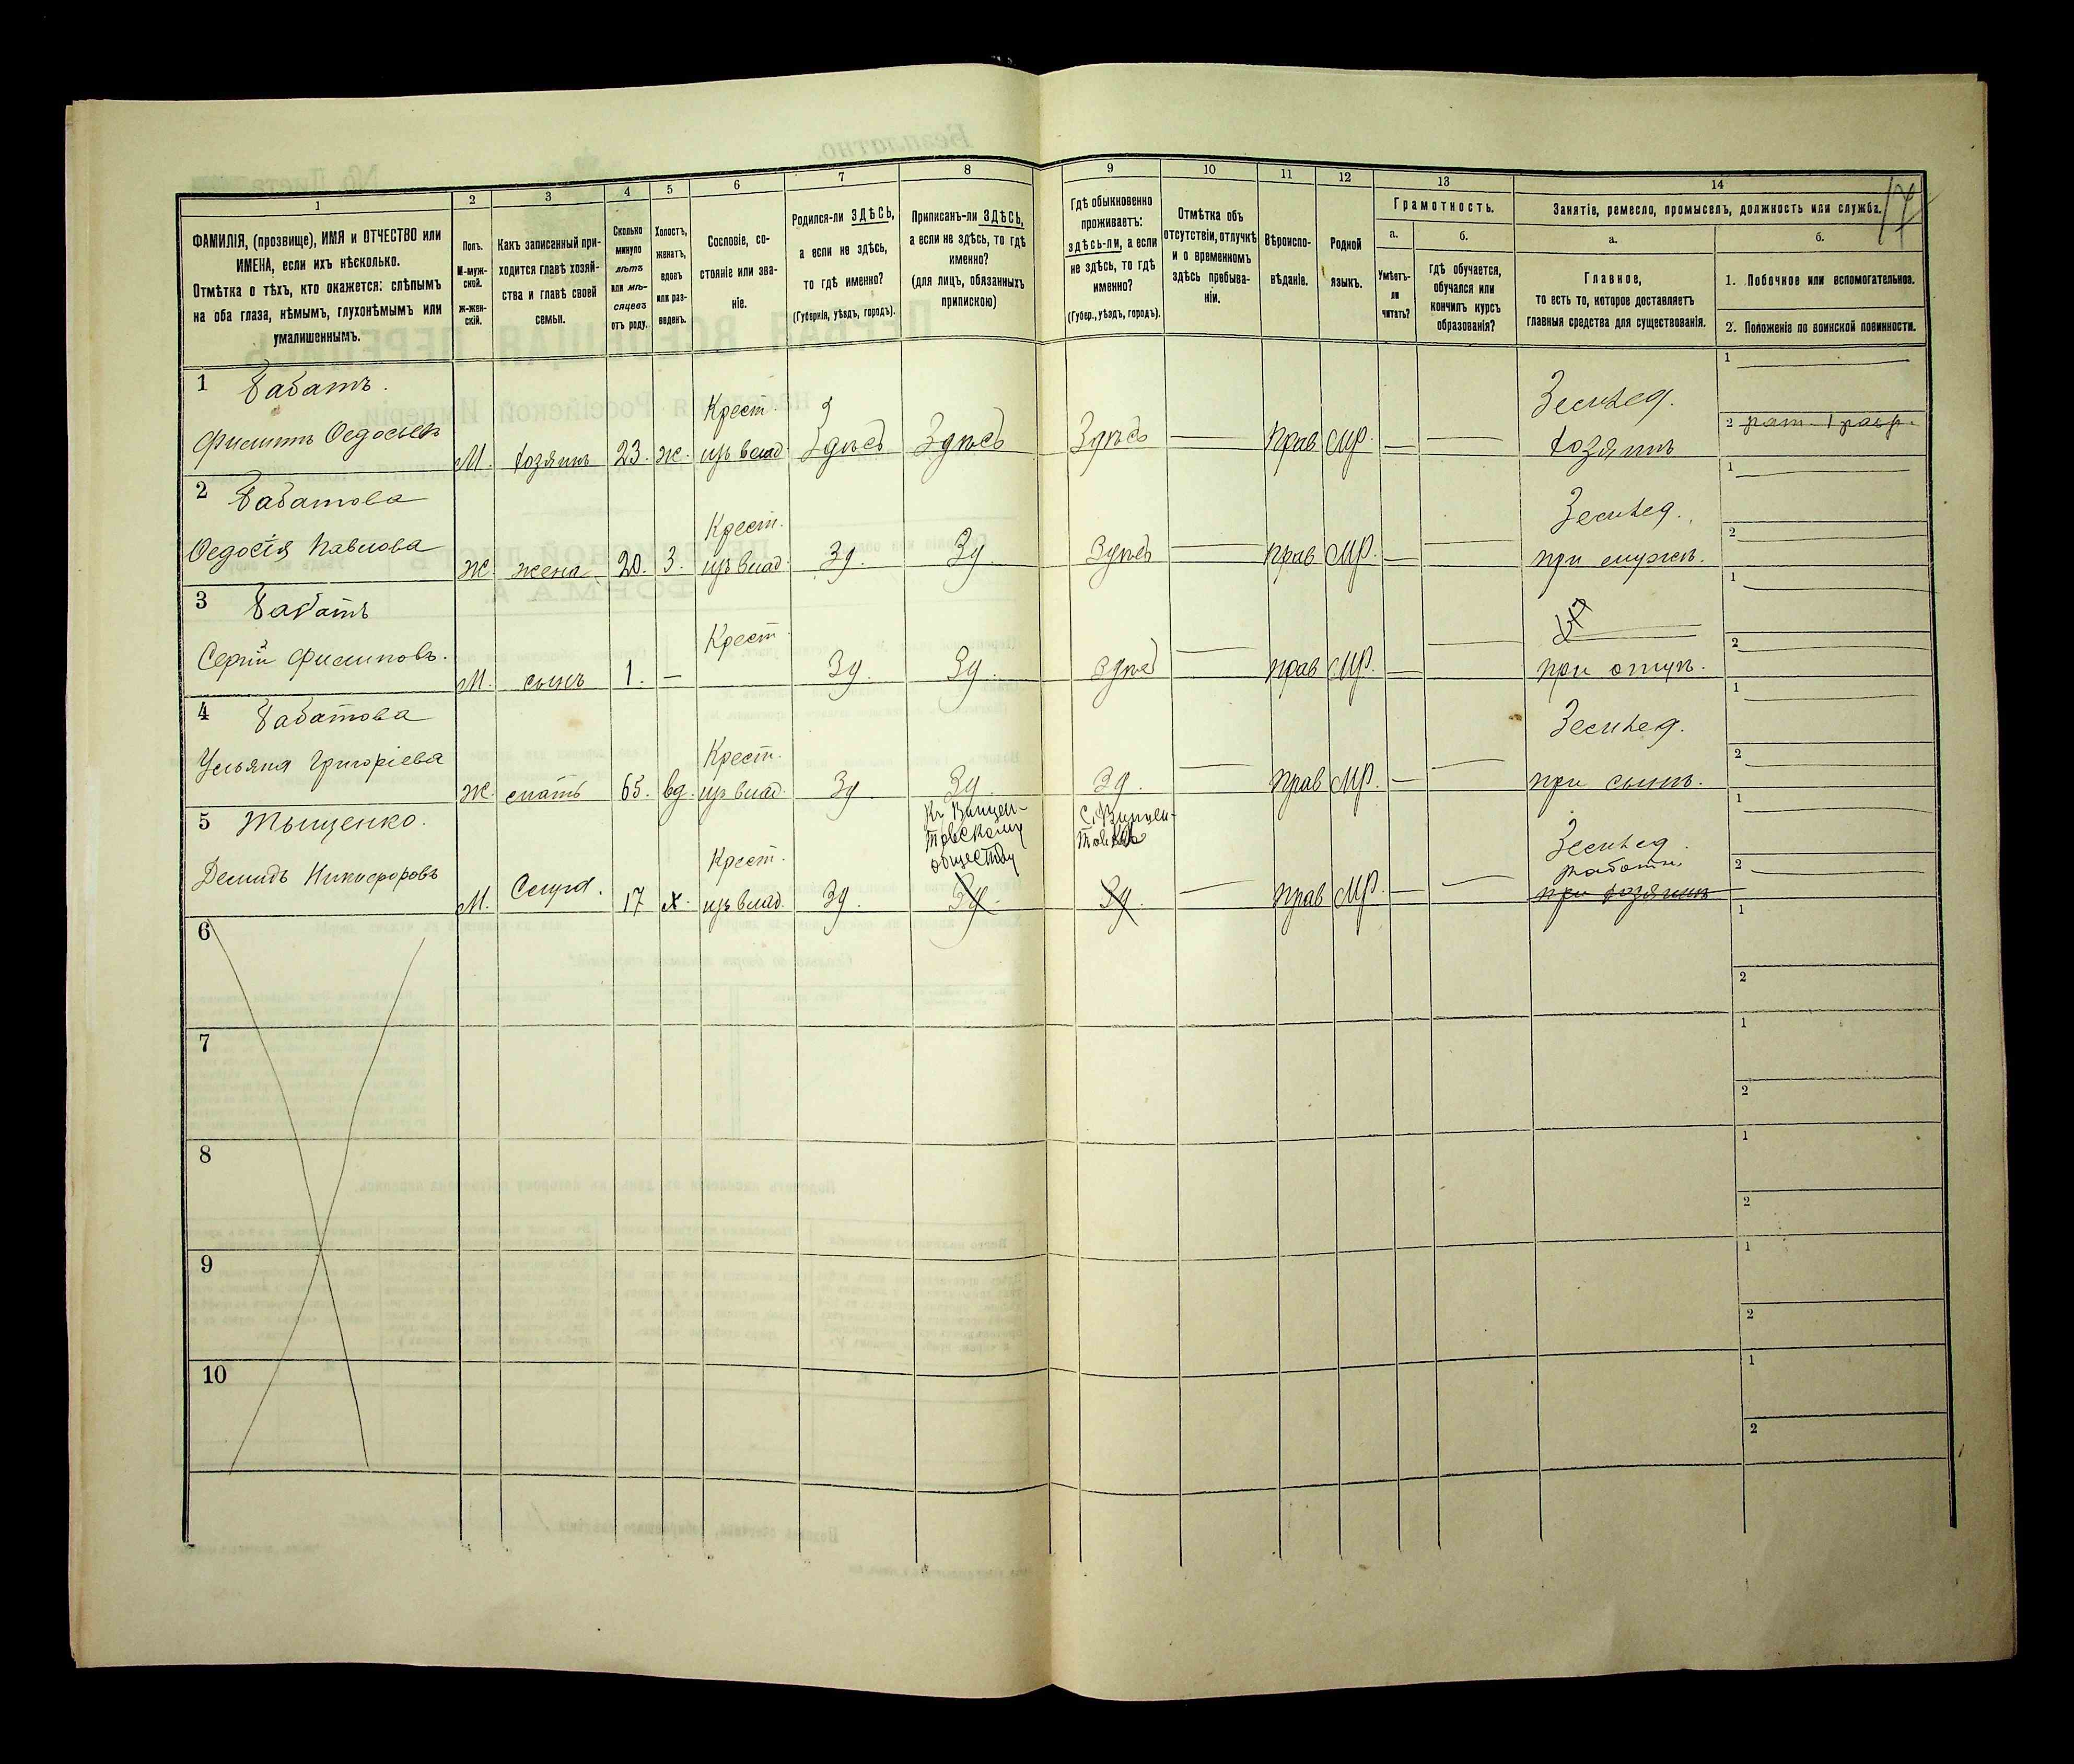 17
1 2 3 4 5 6 7 8 9 10 11 12 13 14
ФАМИЛІЯ, (прозвище), ИМЯ и ОТЧЕСТВО или
ИМЕНА, если ихъ нѣсколько.
Отмѣтка о тѣхъ, кто окажется: слѣпымъ
на оба глаза, нѣмымъ, глухонѣмымъ или
умалишеннымъ.
Полъ.
М-муж-
ской.
Ж-жен-
скій.
Какъ записанный при-
ходится главѣ хозяй-
ства и главѣ своей
семьи.
Сколько
минуло
лѣтъ
или мѣ-
сяцевъ
отъ роду.
Холостъ,
женатъ,
вдовъ
или раз-
веденъ.
Сословіе, со-
стояніе или зва-
ніе.
Родился-ли ЗДѢСЬ,
а если не здѣсь,
то гдѣ именно?
(Губернія, уѣздъ, городъ).
Приписанъ-ли ЗДѢСЬ,
а если не здѣсь, то гдѣ
именно?
(для лицъ, обязанныхъ
припискою)
Гдѣ обыкновенно
проживаетъ:
здѣсь-ли, а если
не здѣсь, то гдѣ
именно?
(Губер., уѣздъ, городъ).
Отмѣтка объ
отсутствіи, отлучкѣ
и о временномъ
здѣсь пребыва-
ніи.
Вѣроиспо-
вѣданіе.
Родной
языкъ.
Грамотность.
а.
Умѣетъ-
ли
читать?
б.
Гдѣ обучается,
обучался или
кончилъ курсъ
образованія?
Занятіе, ремесло, промыселъ, должность или служба.
а.
Главное,
то есть то, которое доставляетъ
главныя средства для существованія.
б.
1. Побочное или вспомогательное.
2. Положеніе по воинской повинности.
1 Бабатъ.
Филиппъ Ѳедосьевъ
М. Хозяинъ 23. Ж. Крест. изъ влад. Здѣсь Здѣсь Здѣсь — Прав Мр. — — Землед. Хозяинъ
1 —
2 рат. 1 разр.
2 Бабатова
Ѳедосія Павлова
Ж. жена 20. З. Крест. изъ влад. Зд. Зд. Здѣсь — Прав Мр. — — Землед. при мужѣ.
1 —
2 —
3 Бабатъ
Сергій Филиповъ.
М. сынъ 1. — Крест. Зд. Зд. Здѣсь — Прав Мр. — — при отцѣ.
1 —
2 —
4 Бабатова
Ульяна Григоріева
Ж. мать 65. вд. Крест. изъ влад. Зд. Зд. Зд. — Прав Мр. — — Землед. при сынѣ.
1 —
2 —
5 Тыщенко.
Демидъ Никифоровъ
М. Слуга. 17 х. Крест. изъ влад. Зд. Къ Винцен-
товскому
обществу
Зд. С. Винцен-
Зд. — Прав Мр. — — Землед.
работн.
при хозяинѣ
1 —
2 —
6
1
2
7
1
2
8
1
2
9
1
2
10
1
2